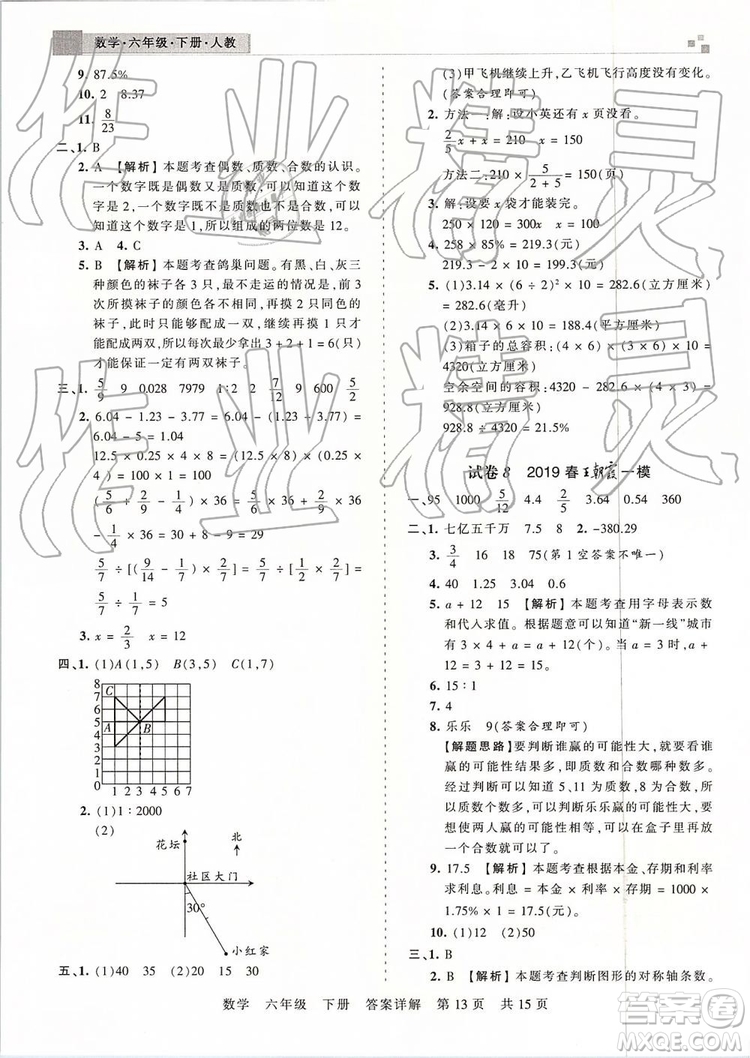 数学·六年级·下册·人教
9. 87.5%
10. 2 8.37
11. 8/23
二、1. A
2. A 【解析】本题考查偶数、质数、合数的认识。
一个数字既是偶数又是质数,可以知道这个数
字是2,一个数字既不是质数也不是合数,可以
知道这个数字是1,所以组成的两位数是12。
3. A 4. C
5. B 【解析】本题考查鸽巢问题。有黑、白、灰三
种颜色的袜子各6只,最不走运的情况是,前3
次摸出的袜子的颜色各不相同,只有再摸2个
袜子,此时只能够配成一双,继续再摸1只才能
够配成两双,所以每次最少拿出3+2+1=6(只)
才能保证一定有两双袜子。
三、1. 5/9 9 0.028 7979 1:2 7/12 9 600
2. 6.04-1.23-3.77=6.04-(1.23+3.77)=
6.04-5=1.04
12.5×0.25×32=(12.5×8)×(0.25×4)=
100×1=100
(5/6-1/4+2/9)×36=5/6×36
-1/4×36+2/9×36=30-9+8=29
5/7÷[(9/14-1/7)×2/7]=5/7÷[1/2×2/7]=
5/7÷1/7=5
3. x=2/3 x=9
四、1. (1)A(1,5) B(3,5) C(1,7)
8
7
6
5
4
3
2
1
0 1 2 3 4 5 6 7
C
A
B
2. (1)1:2000
(2)
北
花坛
社区大门
30°
小红家
五、1. (1)40 35 (2)15 25
(3)甲飞机继续上升,乙飞机飞行高度没有变化。
(答案合理即可)
2. 方法一:解:设小英还有x页没有看。
2/5x+x=210 x=150
方法二:210×5/(2+5)=150(页)
3. 解:设要x袋才能装完。
250×120=300x x=100
4. 258×85%=219.3(元)
219.3<220 够
5. (1)3.14×(6÷2)²×10=282.6(立方厘米)
282.6(立方厘米)=282.6(毫升)
(2)3.14×6×10=188.4(平方厘米)
(3)箱子的总容积:(4×6)×(3×6)×10=
4320(立方厘米)
空余空间的容积:4320-282.6×(4×3)=
928.8(立方厘米)
928.8÷4320=21.5%
试卷8 2019春王朝霞一模
一、95 1000 5/12 4.4 2/5 3.64 0.54 360
二、1. 七亿五千万 7.5 8 2. -380.29
3. 3/4 16 18 75(第1空答案不唯一)
4. 40 1.25
5. a+12 15 【解析】本题考查用字母表示数
和代入求值。根据题意可以知道“新一线”城市
有3×4+a=a+12(个)。当a=3时,a+
12=3+12=15。
6. 15:1
7. 4
8. 乐乐 9(答案合理即可)
【解题思路】要判断谁赢的可能性大,就要看谁
赢的可能性的结果数多,5、11为质数,8为合数,所
以质数个数多,则可以判断出乐乐赢的可能性大,
要使两人赢的可能性相等,可以在盒子里再
放一个合数。
9. 17.5 【解析】本题考查根据本金、存期和利率
求利息。利息=本金×利率×存期=1000×
1.75%×1=17.5(元)。
10. (1)12 (2)50
三、1. B 【解析】本题考查判断图形的对称轴条数。
数学 六年级 下册 答案详解 第13页 共15页